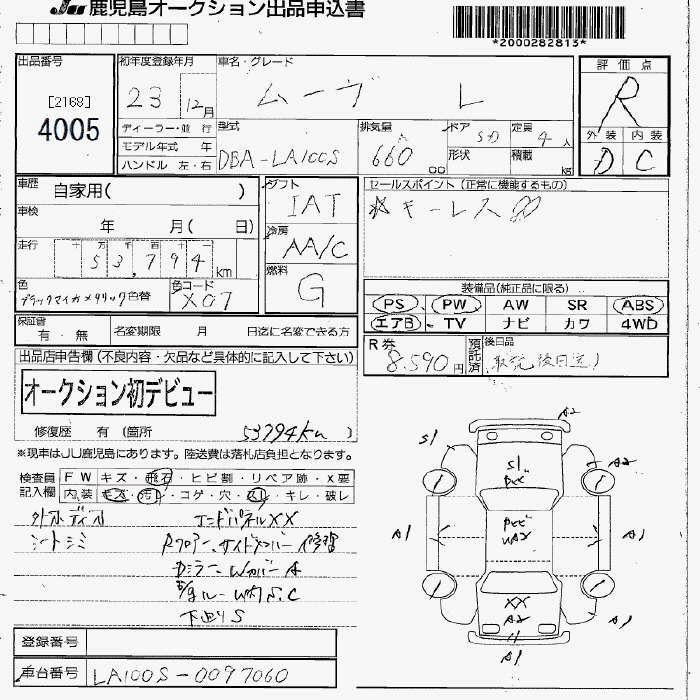 JU 鹿児島オークション出品申込書
*2000282813*
出品番号
[2168]
4005
初年度登録年月
23 12月
車名・グレード
ムーヴ L
評価点
R
外装 内装
D C
ディーラー・並行
モデル年式 年
ハンドル 左・右
型式
DBA-LA100S
排気量
660
cc
ドア 5D
形状
定員 4人
積載 kg
車歴 自家用( )
車検 年 月( 日)
走行 十 万 千 百 十 一
53,794 km
色
ブラックマイカメタリック色替
色コード
X07
シフト
IAT
冷房
AA/C
燃料
G
セールスポイント (正常に機能するもの)
キーレス
装備品(純正品に限る)
PS PW AW SR ABS
エアB TV ナビ カワ 4WD
保証書
有・無
名変期限 月 日迄に名変できる方
R券
8,590円
預託済
後日品
取説後日送)
出品店申告欄(不良内容・欠品など具体的に記入して下さい)
オークション初デビュー
修復歴 有(箇所 53794km )
※現車はJU鹿児島にあります。陸送費は落札店負担となります。
検査員記入欄
FW キズ・飛石・ヒビ割・リペア跡・X要
内装 キズ・汚れ・コゲ・穴・スレ・キレ・破レ
外オーディオ エンドパネルXX
シートシミ Rフロアー、サイドメンバー修理
下廻りS
A2
S1
A2
S1
A1
A1
XX
A2
A1
A1
登録番号
車台番号 LA100S-0097060